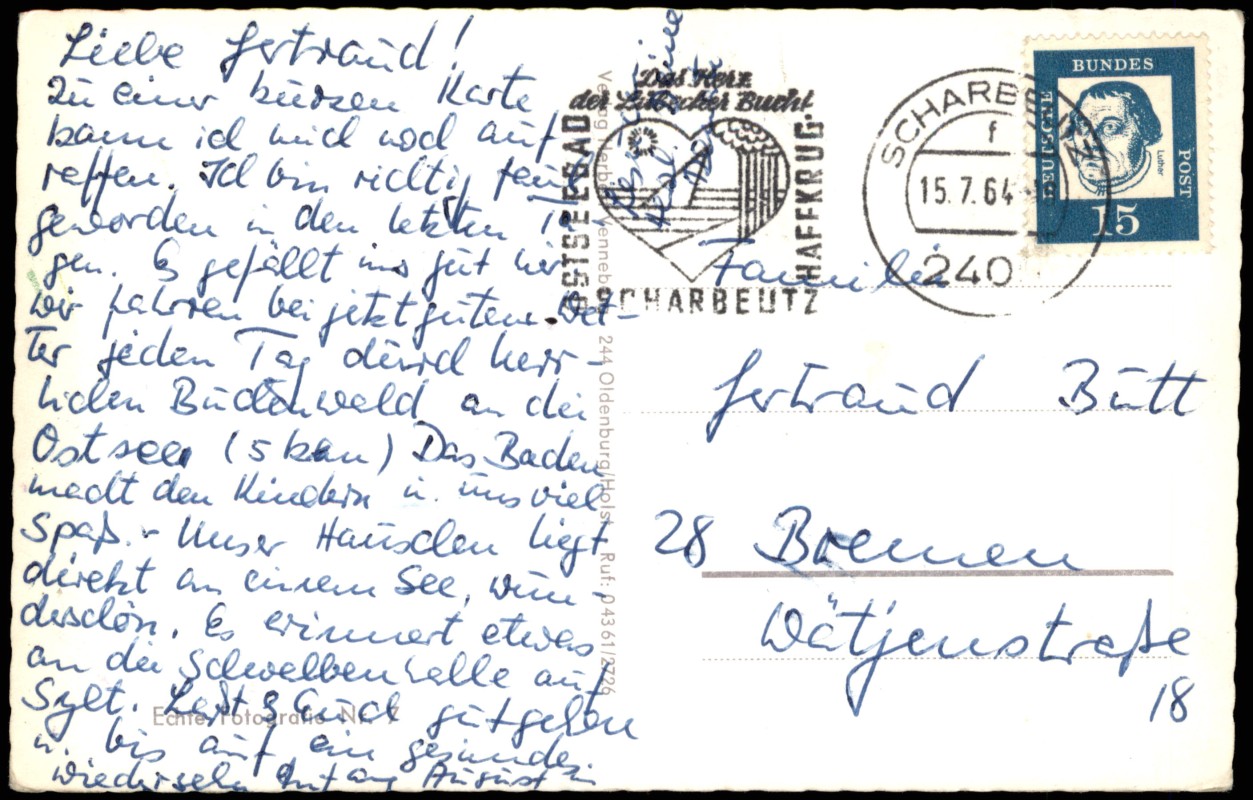 Liebe Gertraud!
Zu einer kurzen Karte
kann ich mich noch auf-
raffen. Ich bin richtig faul
geworden in den letzten Ta-
gen. Es gefällt uns gut hier
wir fahren bei jetzt gutem Wet-
ter jeden Tag durch herr-
lichen Buchenwald an die
Ostsee (5 km) Das Baden
macht den Kindern u. uns viel
Spaß. - Unser Häuschen liegt
direkt an einem See, wun-
derschön. Es erinnert etwas
an die Schwalbenhalle auf
Sylt. Laßt Euch gutgehen
u. bis auf ein gesundes
Wiedersehn Anfang August
Echte Fotografie Nr. 7
244 Oldenburg/Holst. Ruf: 04361/2726
Das Herz
der Lübecker Bucht
OSTSEEBAD
SCHARBEUTZ
HAFFKRUG
SCHARBEUTZ
f
15.7.64
240
DEUTSCHE
BUNDES
POST
Luther
15
Familie
Gertraud Bütt
28 Bremen
Wätjenstraße
18